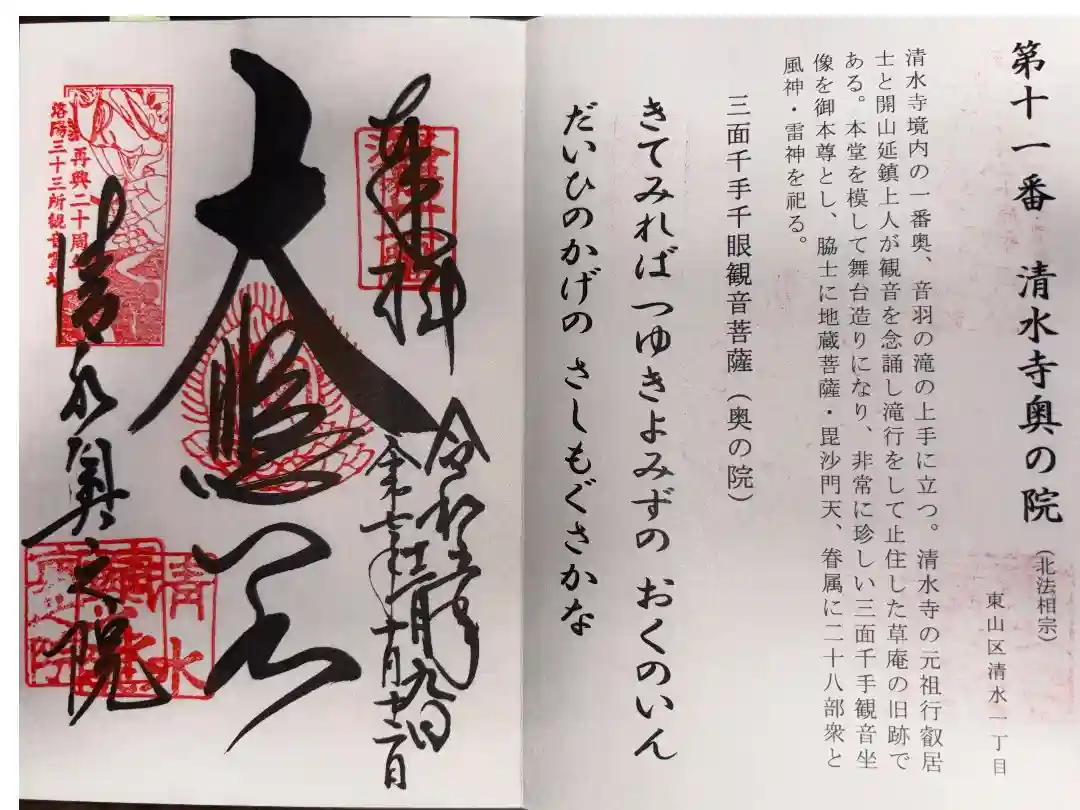 第十一番 清水寺奥の院(北法相宗)
東山区清水一丁目
清水寺境内の一番奥、音羽の滝の上手に立つ。清水寺の元祖行叡居
士と開山延鎮上人が観音を念誦し滝行をして止住した草庵の旧跡で
ある。本堂を模して舞台造りになり、非常に珍しい三面千手観音坐
像を御本尊とし、脇士に地蔵菩薩・毘沙門天、眷属に二十八部衆と
風神・雷神を祀る。
三面千手千眼観音菩薩(奥の院)
きてみれば つゆきよみずの おくのいん
だいひのかげの さしもぐさかな
奉拝
令和
大悲閣
再興二十周年
洛陽三十三所観音霊場
清水奥之院
清水